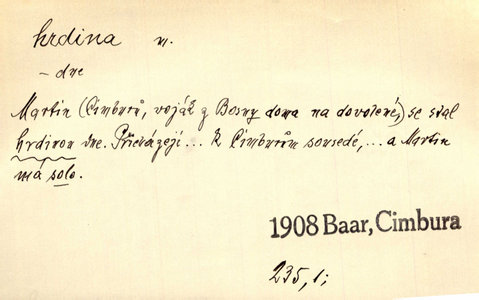 hrdina m.
– dne
Martin (Cimburů, voják z Bosny doma na dovolené,) se stal
hrdinou dne. Přicházejí... k Cimburům sousedé,... a Martin
má solo.
1908 Baar, Cimbura
235, 1;